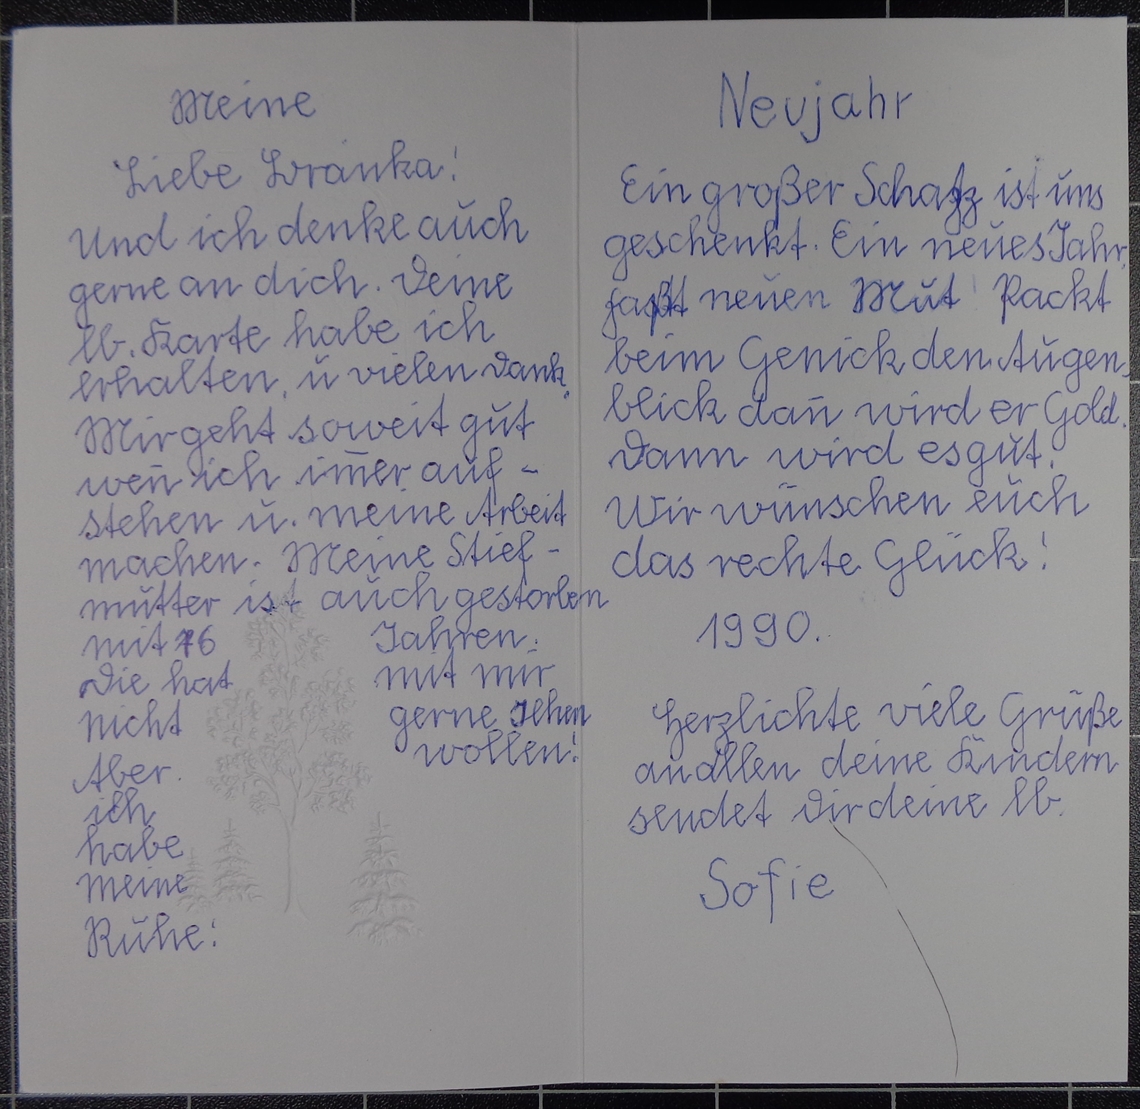 Meine
Liebe Branka!
Und ich denke auch
gerne an dich. Deine
lb. Karte habe ich
erhalten, u vielen Dank.
Mir geht soweit gut
weñ ich im̄er auf-
stehen u. meine Arbeit
machen. Meine Stief-
mutter ist auch gestorben
mit 76 Jahren.
Die hat mit mir
nicht gerne
wollen!
Aber.
ich
habe
meine
Ruhe!
Neujahr
Ein großer Schatz ist uns
geschenkt. Ein neues Jahr,
faßt neuen Mut! Packt
beim Genick den Augen,
blick dañ wird er Gold.
Dann wird es gut.
Wir wünschen euch
das rechte Glück!
1990.
Herzlichte viele Grüße
an allen deine Kindern
sendet Dir deine lb.
Sofie